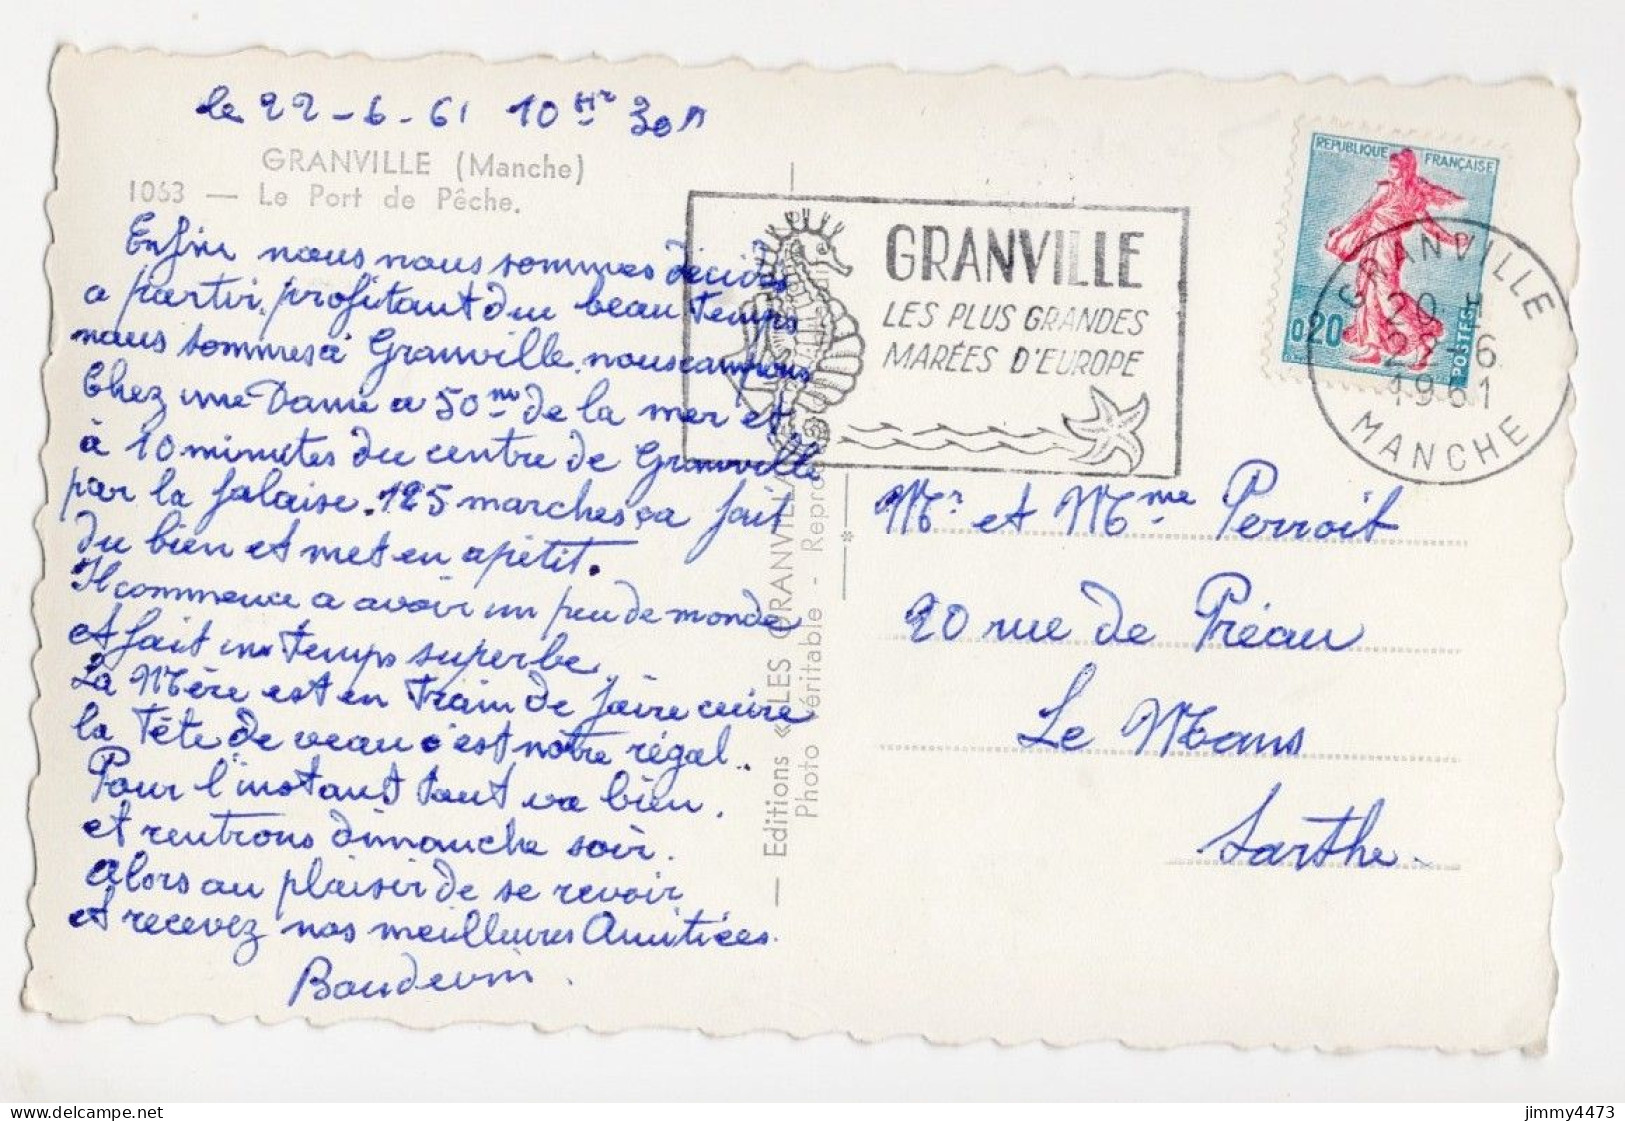 le 22-6-61 10 Hr 30
GRANVILLE (Manche)
1063 — Le Port de Pêche.
Enfin nous nous sommes décidés
a partir, profitant du beau temps
nous sommes à Granville, nous campons
Chez une Dame a 50 m de la mer et
à 10 minutes du centre de Granville
par la falaise. 125 marches ça fait
du bien et met en apétit.
Il commence a avoir un peu de monde
et fait un temps superbe.
La Mère est en train de faire cuire
la Tête de veau c'est notre régal..
Pour l'instant tout va bien.
et rentrons dimanche soir.
Alors au plaisir de se revoir
et recevez nos meilleures Amitiées.
Baudevin.
— Editions « LES GRANVILLA
Photo véritable - Repro
GRANVILLE
LES PLUS GRANDES
MARÉES D'EUROPE
REPUBLIQUE FRANÇAISE
0,20
POSTES
GRANVILLE
20 H
22-6
1961
MANCHE
Mr. et Mme Perroit
20 rue de Préau
Le Mans
Sarthe.
jimmy4473